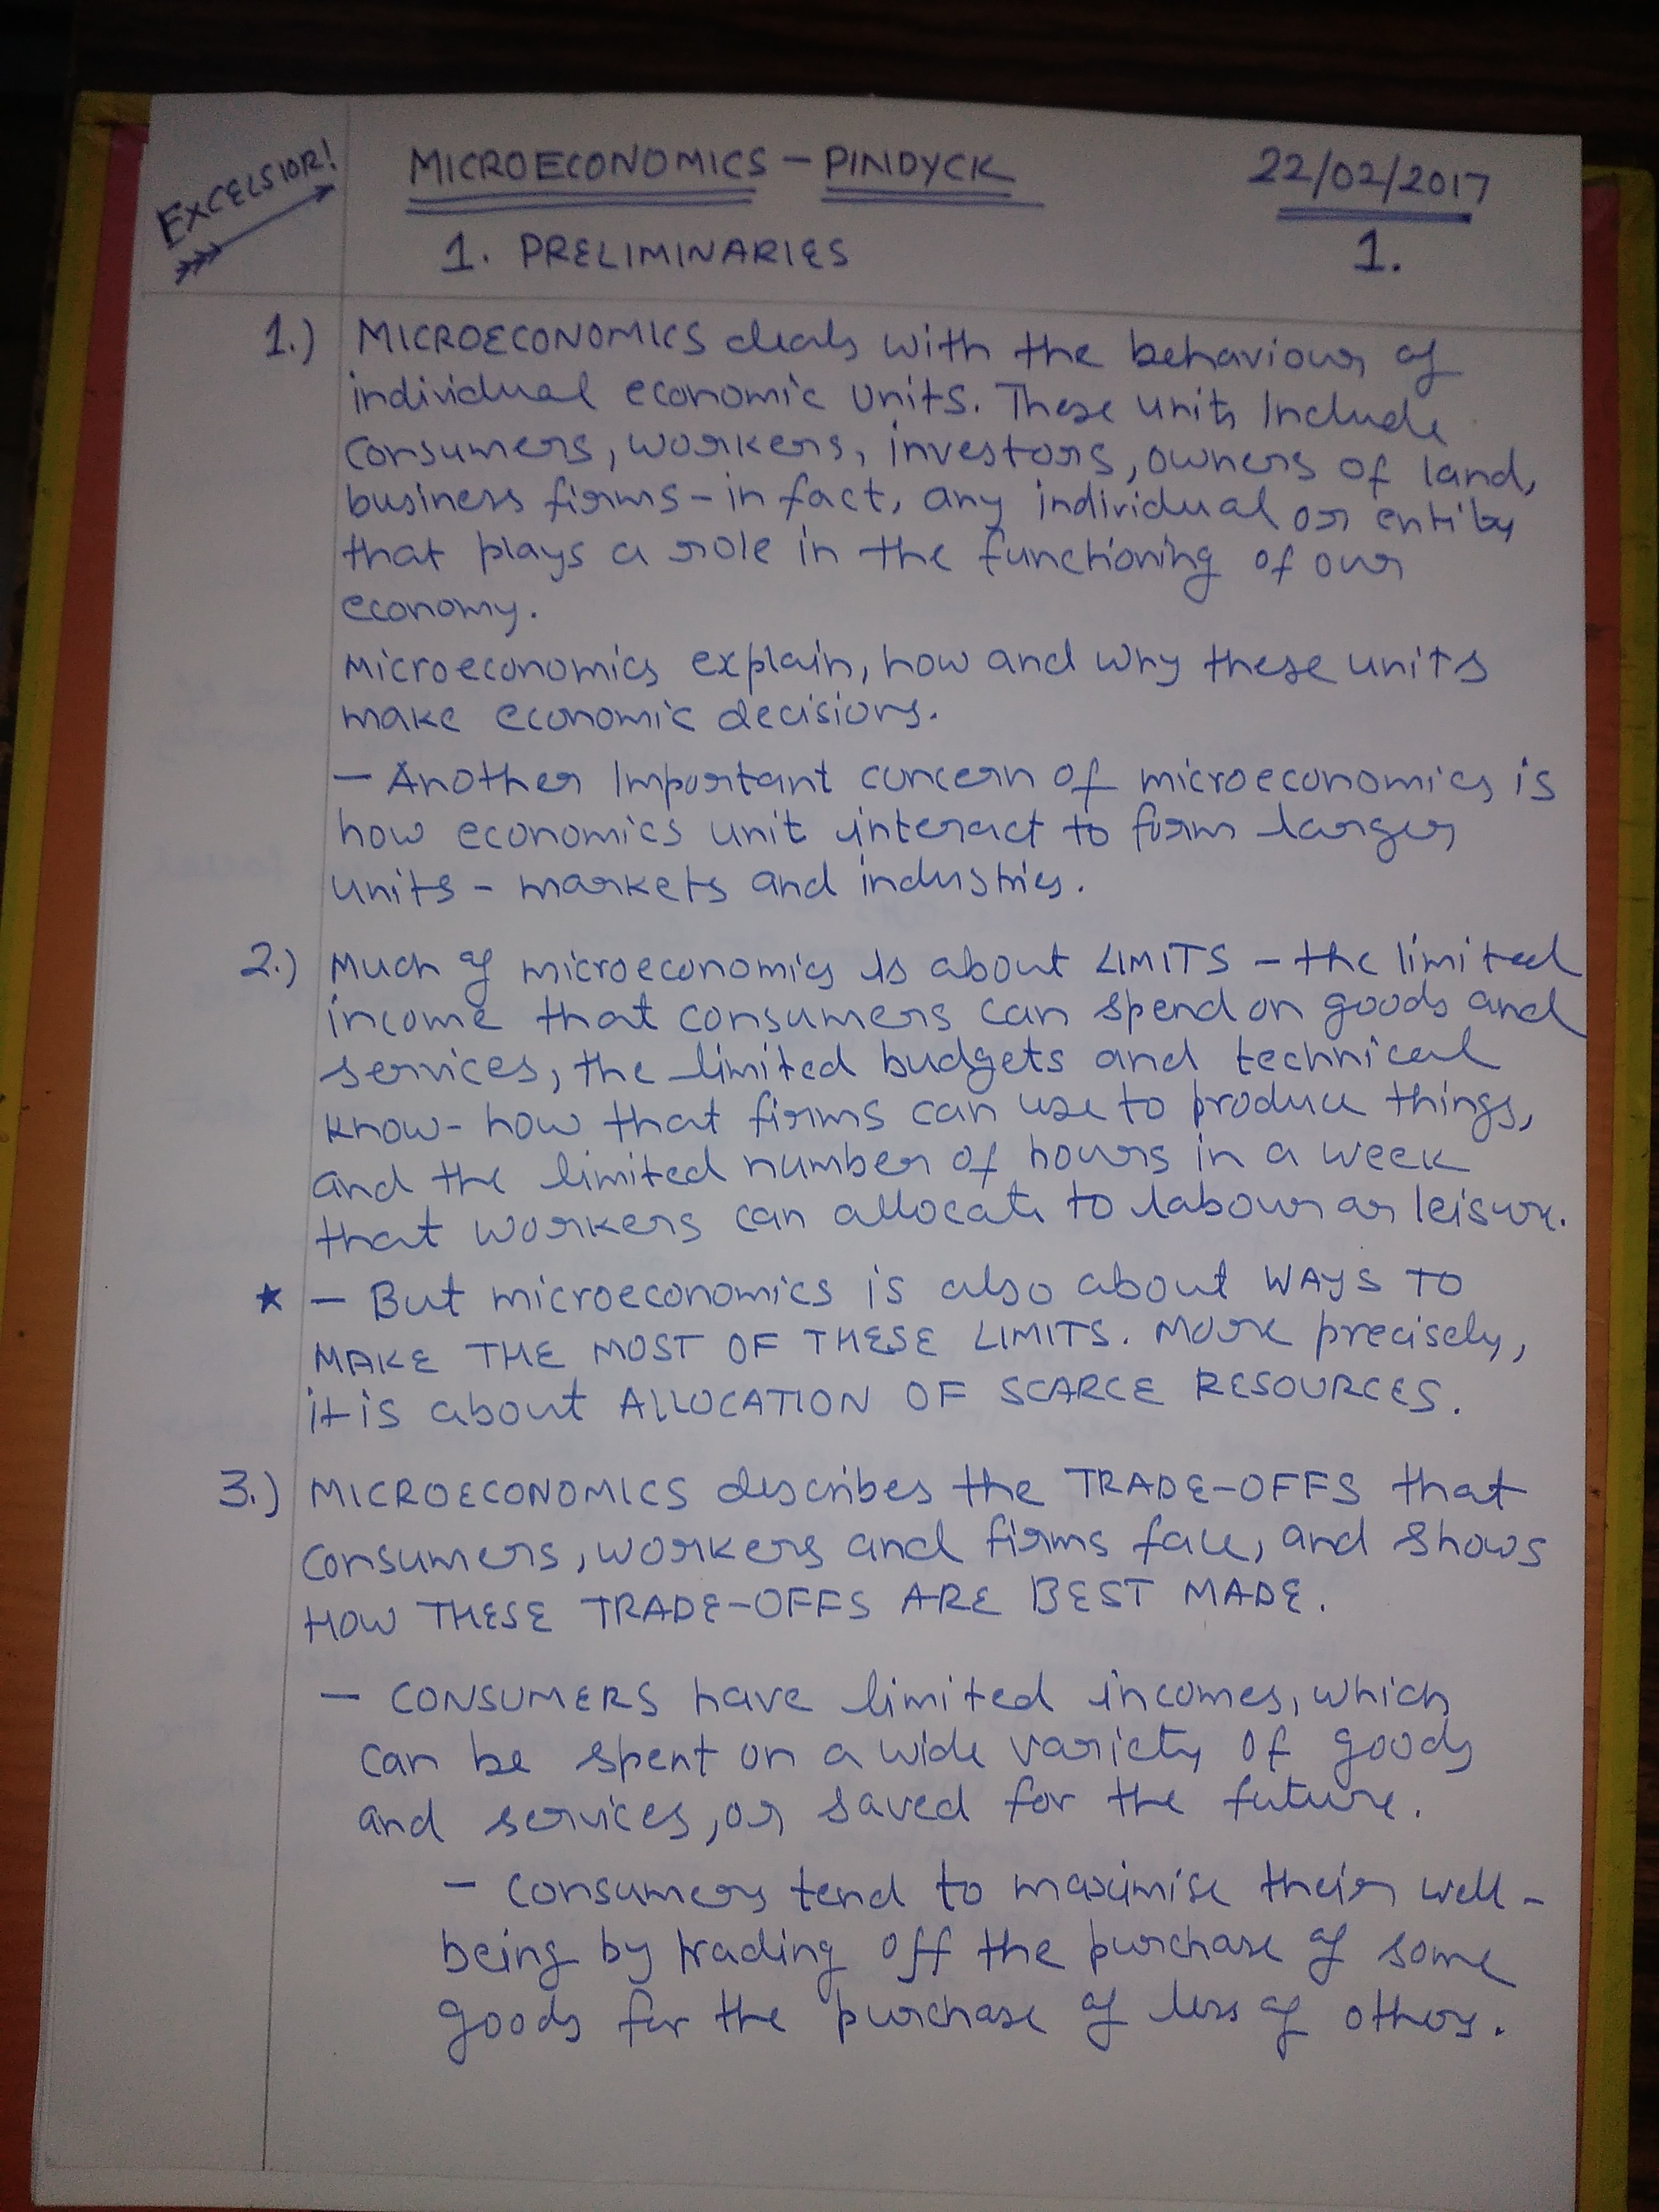 EXCELSIOR!
MICROECONOMICS - PINDYCK
22/02/2017
1. PRELIMINARIES
1.
1.) MICROECONOMICS deals with the behaviour of
individual economic units. These units include
consumers, workers, investors, owners of land,
business firms - in fact, any individual or entity
that plays a role in the functioning of our
economy.
Microeconomics explain, how and why these units
make economic decisions.
- Another Important concern of microeconomics is
how economics unit interact to form larger
units - markets and industries.
2.) Much of microeconomics is about LIMITS - the limited
income that consumers can spend on goods and
services, the limited budgets and technical
know-how that firms can use to produce things,
and the limited number of hours in a week
that workers can allocate to labour or leisure.
★ - But microeconomics is also about WAYS TO
MAKE THE MOST OF THESE LIMITS. More precisely,
it is about ALLOCATION OF SCARCE RESOURCES.
3.) MICROECONOMICS describes the TRADE-OFFS that
consumers, workers and firms face, and shows
HOW THESE TRADE-OFFS ARE BEST MADE.
- CONSUMERS have limited incomes, which
can be spent on a wide variety of goods
and services, or saved for the future.
- Consumers tend to maximise their well-
being by trading off the purchase of some
goods for the purchase of less of others.